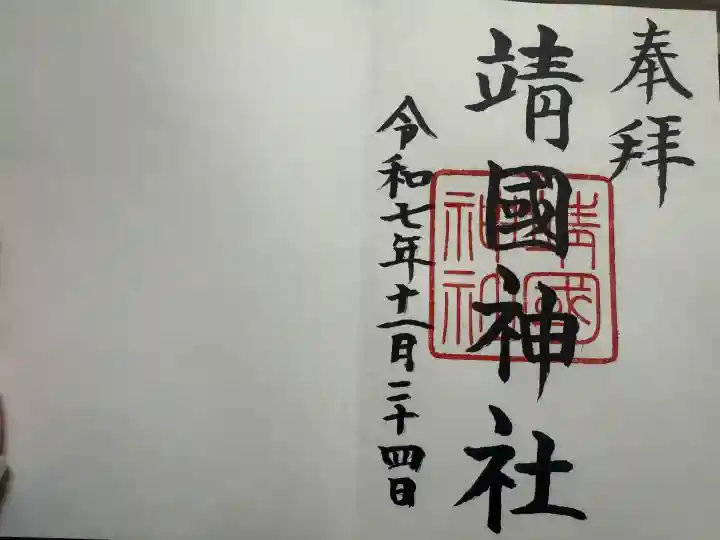 奉拝
靖國神社
靖國神社
令和七年十一月二十四日